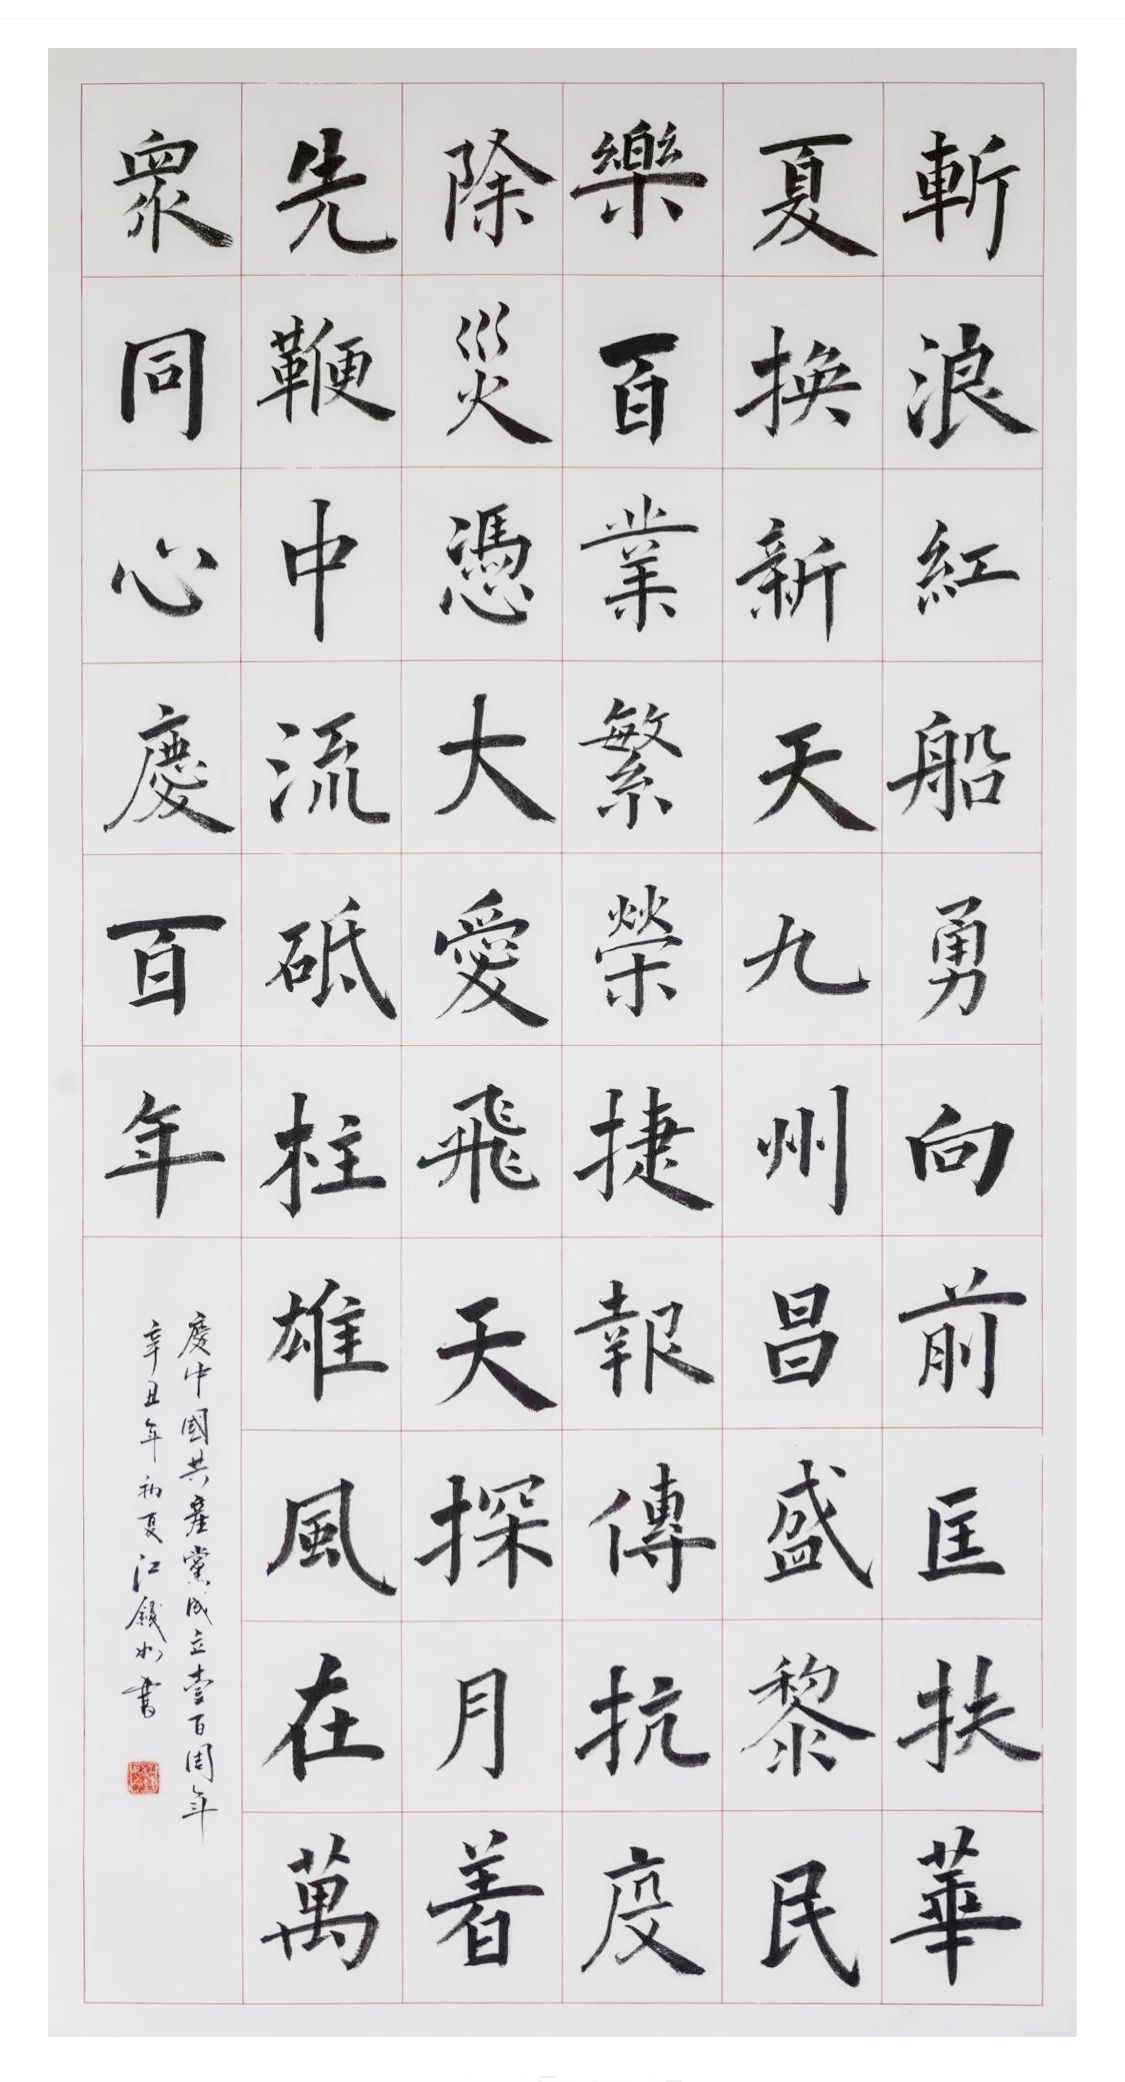 斬浪紅船勇向前匡扶華
夏換新天九州昌盛黎民
樂百業繁榮捷報傳抗疫
除災憑大愛飛天探月着
先鞭中流砥柱雄風在萬
衆同心慶百年
慶中國共產黨成立壹百周年
辛丑年初夏江錢如書